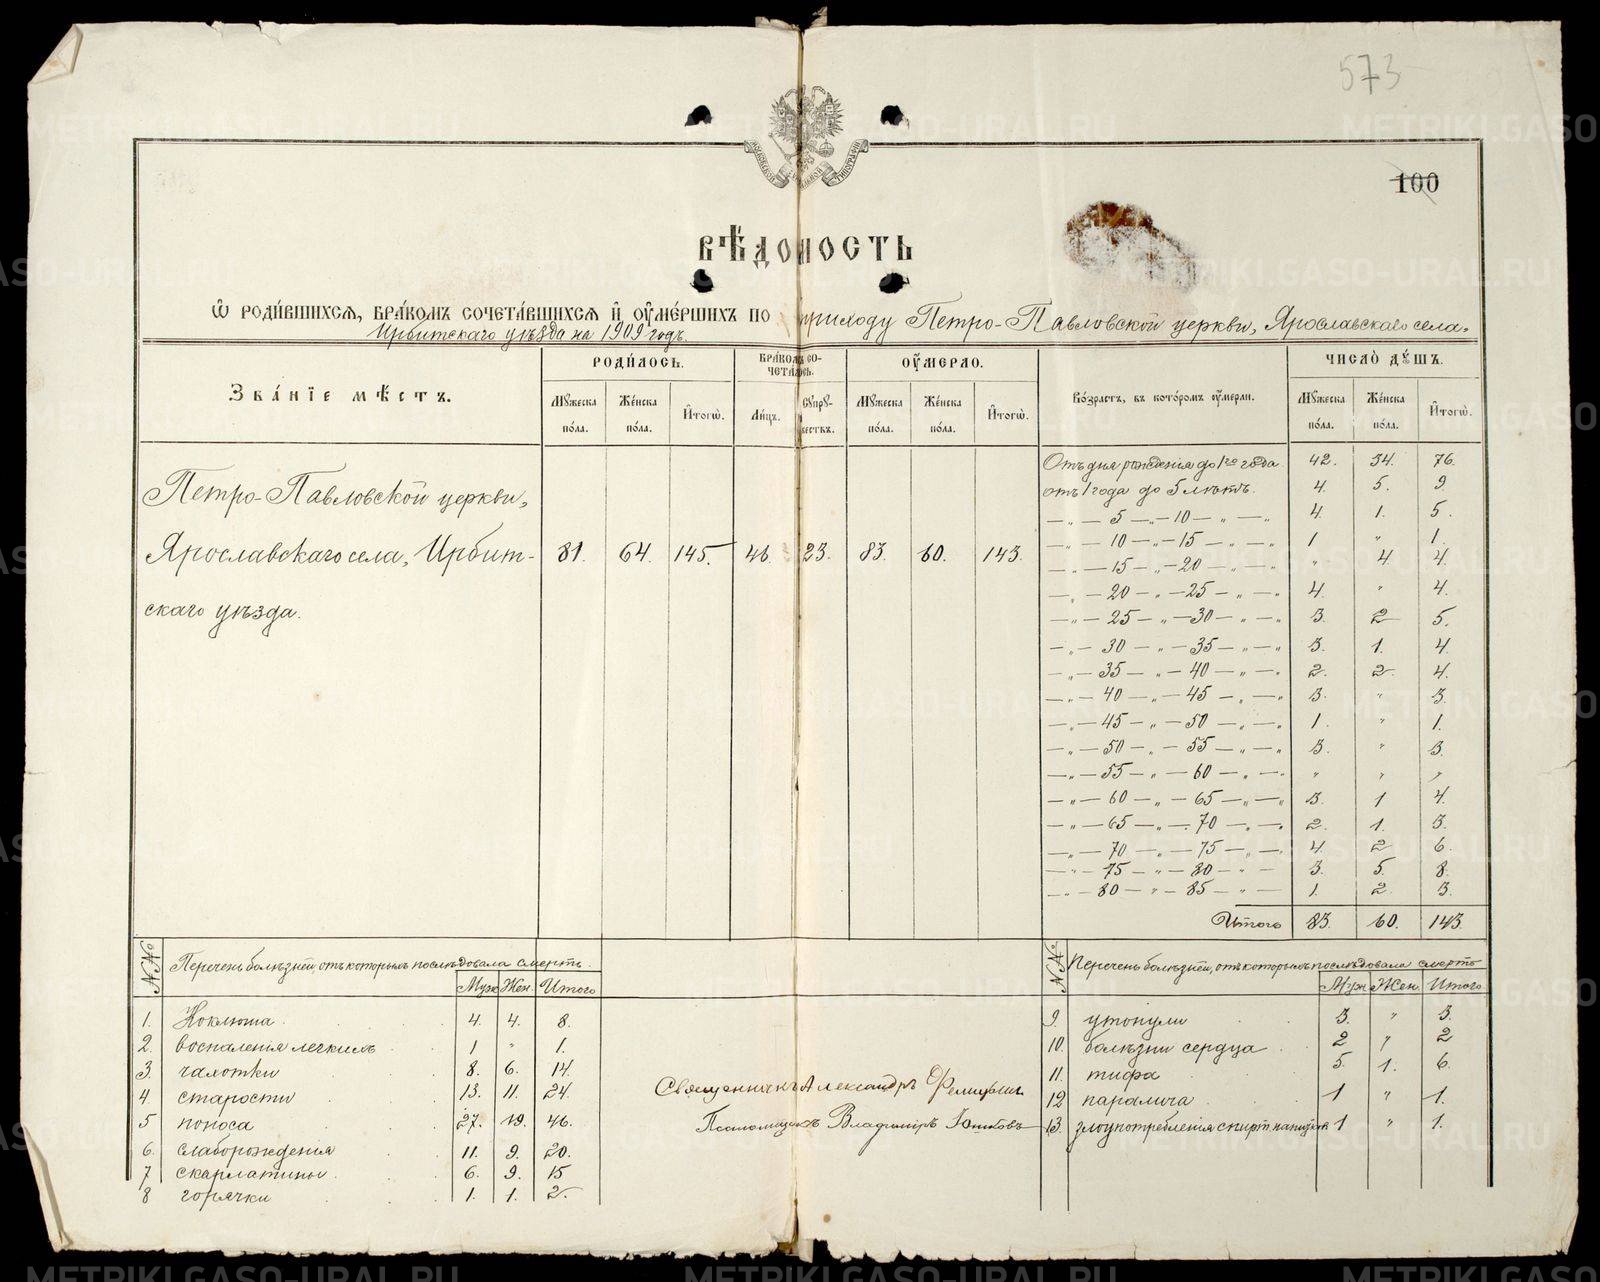 573
100
ВѢ́ДОМОСТЬ
Ѡ҆ РОДИ́ВШИХСѦ, БРА́КОМЪ СОЧЕТА́ВШИХСѦ И҆ ОУ҆МЕ́РШИХЪ ПО приходу Петро-Павловской церкви, Ярославскаго села,
Ирбитскаго уѣзда на 1909 годъ.
Зва́нїе мѣ́стъ. РОДИ́ЛОСЬ. БРА́КОМЪ СО-ЧЕТА́ЛОСЬ. ОУ҆́МЕРЛО. Во́зрастъ, въ кото́ромъ оу҆́мерли. ЧИСЛО̀ ДꙊ́ШЪ.
Мꙋ́жеска по́ла. Же́нска по́ла. И҆тогѡ̀. Ли́цъ. Сꙋпрꙋ́-жествъ. Мꙋ́жеска по́ла. Же́нска по́ла. И҆тогѡ̀. Мꙋ́жеска по́ла. Же́нска по́ла. И҆тогѡ̀.
Петро-Павловской церкви,
Ярославскаго села, Ирбит- 81. 64. 145. 46. 23. 83. 60. 143.
скаго уѣзда.
Отъ дня рожденія до 1го года 42. 34. 76.
отъ 1 года до 5 лѣтъ. 4. 5. 9
—„— 5 —„— 10 —„—„ 4. 1. 5.
—„— 10 —„— 15 —„—„ 1 „ 1.
—„— 15 —„— 20 —„—„ „ 4 4.
—„— 20 —„— 25 —„—„ 4. „ 4.
—„— 25 —„— 30 —„—„ 3. 2 5.
—„— 30 —„— 35 —„—„ 3. 1. 4
—„— 35 —„— 40 —„—„ 2. 2. 4.
—„— 40 —„— 45 —„—„ 3. „ 3.
—„— 45 —„— 50 —„—„ 1. „ 1.
—„— 50 —„— 55 —„—„ 3. „ 3.
—„— 55 —„— 60 —„—„ „ „ „
—„— 60 —„— 65 —„—„ 3. 1 4.
—„— 65 —„— 70 —„—„ 2. 1. 3.
—„— 70 —„— 75 —„—„ 4. 2 6.
—„— 75 —„— 80 —„— 3. 5. 8.
—„— 80 —„— 85 —„— 1. 2. 3.
Итого 83. 60. 143.
№№ Перечень болѣзней, отъ которыхъ послѣдовала смерть.
Муж Жен. Итого
1. Коклюша 4. 4. 8.
2. воспаленія легкихъ 1 „ 1.
3. чахотки 8. 6. 14.
4 старости 13. 11. 24.
5 поноса 27. 19. 46.
6. слаборожденія 11. 9. 20.
7 скарлатины 6. 9. 15
8 горячки 1. 1. 2.
Священникъ Александръ
Псаломщикъ Владиміръ Юшковъ
№№ Перечень болѣзней, отъ которыхъ послѣдовала смерть
Муж Жен. Итого
9. утонули 3. „ 3.
10. болѣзни сердца 2 „ 2
11. тифа 5. 1. 6.
12 паралича 1 „ 1.
13. злоупотребленія спирт. напитк. 1 „ 1.
METRIKI.GASO-URAL.RU